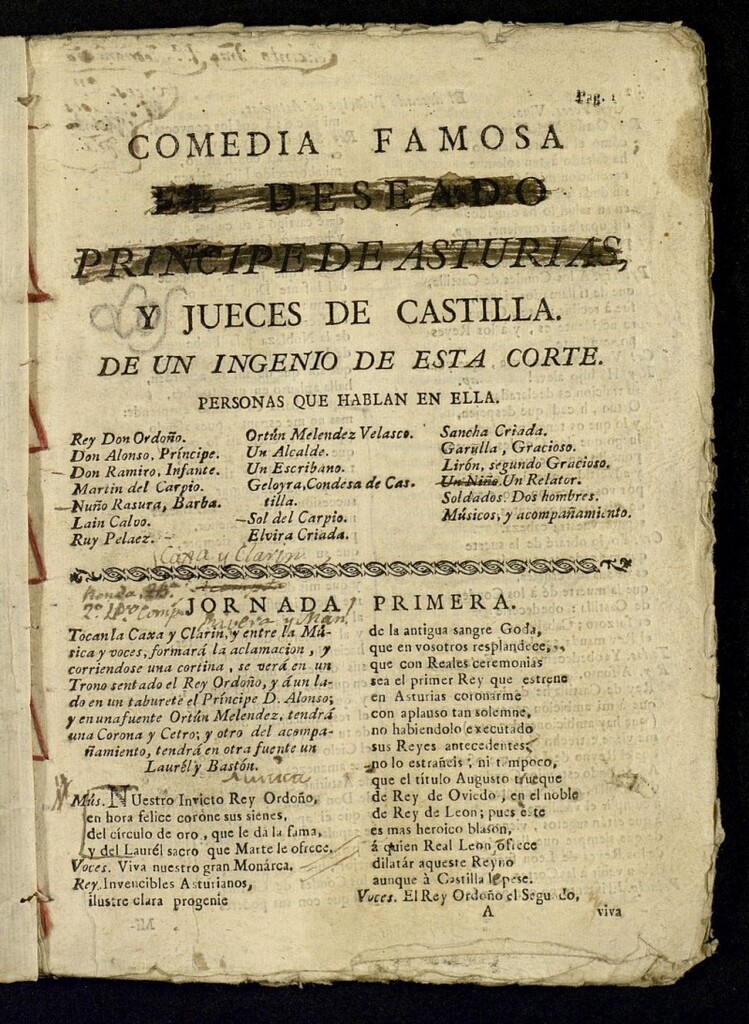 Pag. 1
COMEDIA FAMOSA
EL DESEADO
PRINCIPE DE ASTURIAS,
Y JUECES DE CASTILLA.
DE UN INGENIO DE ESTA CORTE.
PERSONAS QUE HABLAN EN ELLA.
Rey Don Ordoño.
Don Alonso, Príncipe.
Don Ramiro, Infante.
Martin del Carpio.
Nuño Rasura, Barba.
Lain Calvo.
Ruy Pelaez.
Ortún Melendez Velasco.
Un Alcalde.
Un Escribano.
Geloyra, Condesa de Cas-
tilla.
Sol del Carpio.
Elvira Criada.
Sancha Criada.
Garulla, Gracioso.
Lirón, segundo Gracioso.
Un Niño. Un Relator.
Soldados. Dos hombres.
Músicos, y acompañamiento.
Caxa y Clarin
JORNADA PRIMERA.
Tocan la Caxa y Clarin, y entre la Mú-
sica y voces, formará la aclamacion, y
corriendose una cortina, se verá en un
Trono sentado el Rey Ordoño, y á un la-
do en un taburete el Príncipe D. Alonso;
y en una fuente Ortún Melendez, tendrá
una Corona y Cetro; y otro del acompa-
ñamiento, tendrá en otra fuente un
Laurél y Bastón.
Musica
Mús. NUestro Invicto Rey Ordoño,
en hora felice corone sus sienes,
del círculo de oro, que le dá la fama,
y del Laurél sacro que Marte le ofrece.
Voces. Viva nuestro gran Monárca.
Rey. Invencibles Asturianos,
ilustre clara progenie
de la antigua sangre Goda,
que en vosotros resplandece,
que con Reales ceremonias
sea el primer Rey que estrene
en Asturias coronarme
con aplauso tan solemne,
no habiendolo executado
sus Reyes antecedentes;
no lo estrañeis; ni tampoco,
que el título Augusto trueque
de Rey de Oviedo, en el noble
de Rey de Leon; pues este
es mas heroico blasón,
á quien Real Leon ofrece
dilatár aqueste Reyno
aunque à Castilla le pese.
Voces. El Rey Ordoño el Segundo,
A
viva